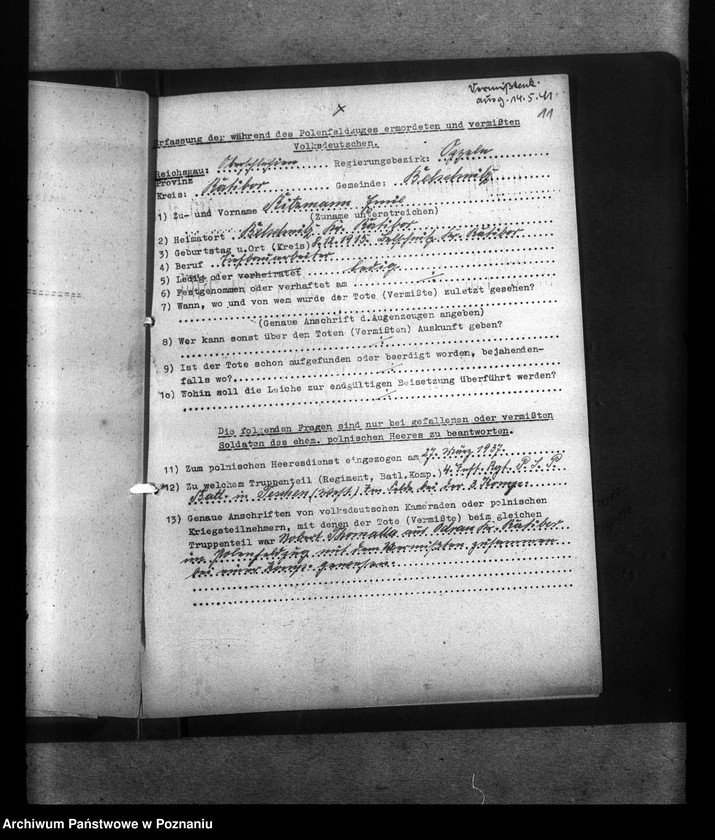 Vermißtenk.
ausg. 14.5.41
11
x
Erfassung der während des Polenfeldzuges ermordeten und vermißten
Volksdeutschen.
Reichsgau: Oberschlesien Regierungsbezirk: Oppeln
Provinz
Kreis: Ratibor Gemeinde: Belschnitz
1) Zu- und Vorname Kitzmann Emil
(Zuname unterstreichen)
2) Heimatort Belschnitz Kr. Ratibor
3) Geburtstag u.Ort (Kreis) 1913. Belschnitz Kr. Ratibor
4) Beruf Tiefbauarbeiter
5) Ledig oder verheiratet ledig
6) Festgenommen oder verhaftet am
7) Wann, wo und von wem wurde der Tote (Vermißte) zuletzt gesehen?
(Genaue Anschrift d.Augenzeugen angeben)
8) Wer kann sonst über den Toten (Vermißten) Auskunft geben?
9) Ist der Tote schon aufgefunden oder beerdigt worden, bejahenden-
falls wo?
10) Wohin soll die Leiche zur endgültigen Beisetzung überführt werden?
Die folgenden Fragen sind nur bei gefallenen oder vermißten
Soldaten des ehem. polnischen Heeres zu beantworten.
11) Zum polnischen Heeresdienst eingezogen am 27. März 1937.
12) Zu welchem Truppenteil (Regiment, Batl.Komp.) 4. Inft. Rgt. P. S. P
Batl. in Teschen bei der 3. Komp.
13) Genaue Anschriften von volksdeutschen Kameraden oder polnischen
Kriegsteilnehmern, mit denen der Tote (Vermißte) beim gleichen
Truppenteil war Robert Thomalla aus Odrau Kr. Ratibor
im Polenfeldzug mit dem Vermißten zusammen
bei einer Komp. gewesen.
Archiwum Państwowe w Poznaniu